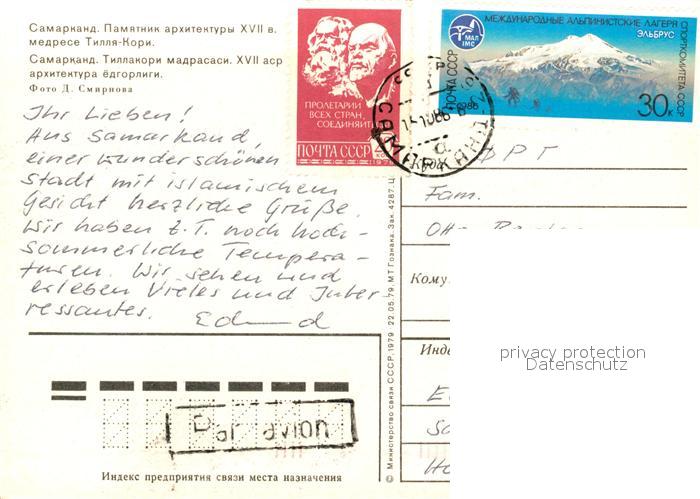 Самарканд. Памятник архитектуры XVII в.
медресе Тилля-Кори.
Самарканд. Тиллакори мадрасаси. XVII аср
архитектура ёдгорлиги.
Фото Д. Смирнова
Ihr Lieben!
Aus Samarkand,
einer wunderschönen
Stadt mit islamischem
Gesicht herzliche Grüße.
Wir haben z.T. noch hoch-
sommerliche Tempera-
turen. Wir sehen und
erleben Vieles und Inter
ressantes.
ПРОЛЕТАРИИ
ВСЕХ СТРАН,
СОЕДИНЯЙТЕСЬ
ПОЧТА СССР
1976
МЕЖДУНАРОДНЫЕ АЛЬПИНИСТСКИЕ ЛАГЕРЯ
СПОРТКОМИТЕТА СССР
ЭЛЬБРУС
МАЛ
IMC
ПОЧТА СССР
1986
30к
Куда
ФРГ
Fam.
Кому
Инде
privacy protection
Datenschutz
© Министерство связи СССР, 1979 22.05.79. МТ Гознака. Зак. 4287. Ц.
Par avion
Индекс предприятия связи места назначения